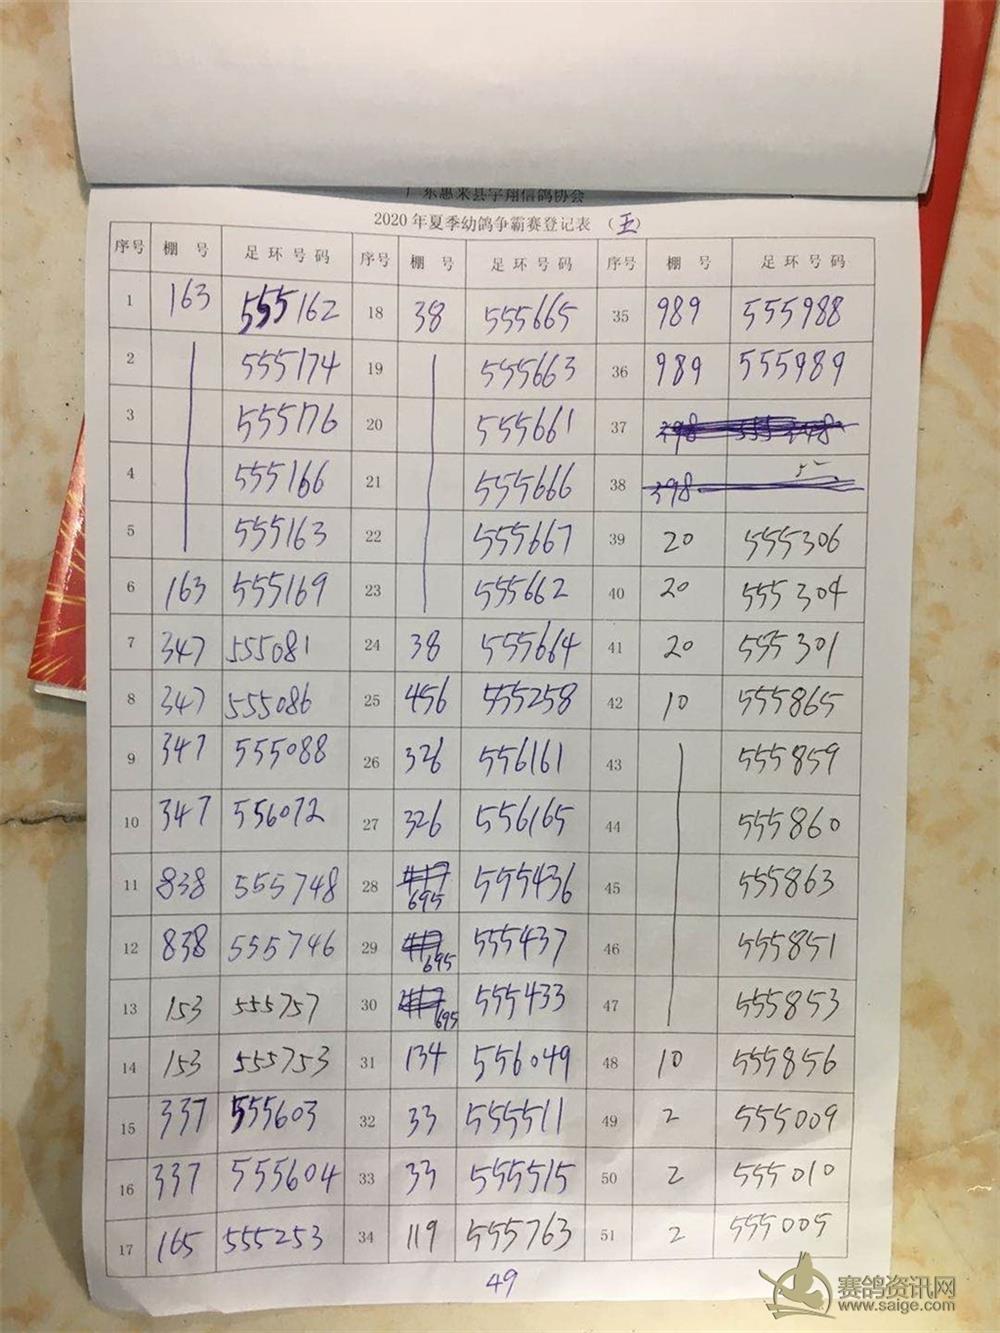 广东惠来县宇翔信鸽协会
2020年夏季幼鸽争霸赛登记表 （五）
序号 棚 号 足 环 号 码 序号 棚 号 足 环 号 码 序号 棚 号 足 环 号 码
1 163 555162 18 38 555665 35 989 555988
2 555174 19 555663 36 989 555989
3 555176 20 555661 37 398
4 555166 21 555666 38 398
5 555163 22 555667 39 20 555306
6 163 555169 23 555662 40 20 555304
7 347 555081 24 38 555664 41 20 555301
8 347 555086 25 456 555258 42 10 555865
9 347 555088 26 326 556161 43 555859
10 347 556072 27 326 556165 44 555860
11 838 555748 28 695 555436 45 555863
12 838 555746 29 695 555437 46 555851
13 153 555757 30 695 555433 47 555853
14 153 555753 31 134 556049 48 10 555856
15 337 555603 32 33 555511 49 2 555009
16 337 555604 33 33 555515 50 2 555010
17 165 555253 34 119 555763 51 2 555005
49
赛鸽资讯网
www.saige.com